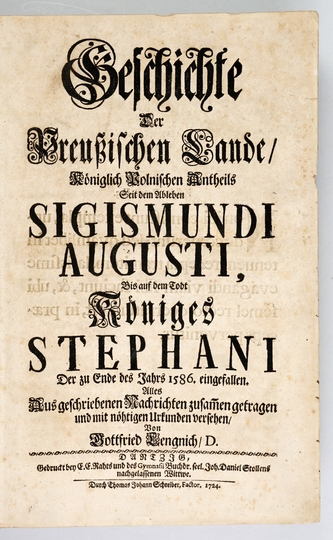 Geschichte
Der
Preußischen Lande/
Königlich Polnischen Antheils
Seit dem Ableben
SIGISMUNDI
AUGUSTI,
Bis auf dem Todt
Königes
STEPHANI
Der zu Ende des Jahrs 1586. eingefallen.
Alles
Aus geschriebenen Nachrichten zusam̄en getragen
und mit nöhtigen Urkunden versehen/
Von
Gottfried Lengnich/D.
DANTZIG,
Gedruct bey E.F.Rahts und des Gymnasii Buchdr. seel. Joh. Daniel Stollens
nachgelassenen Wittwe.
Durch Thomas Johann Schreiber, Factor, 1724.